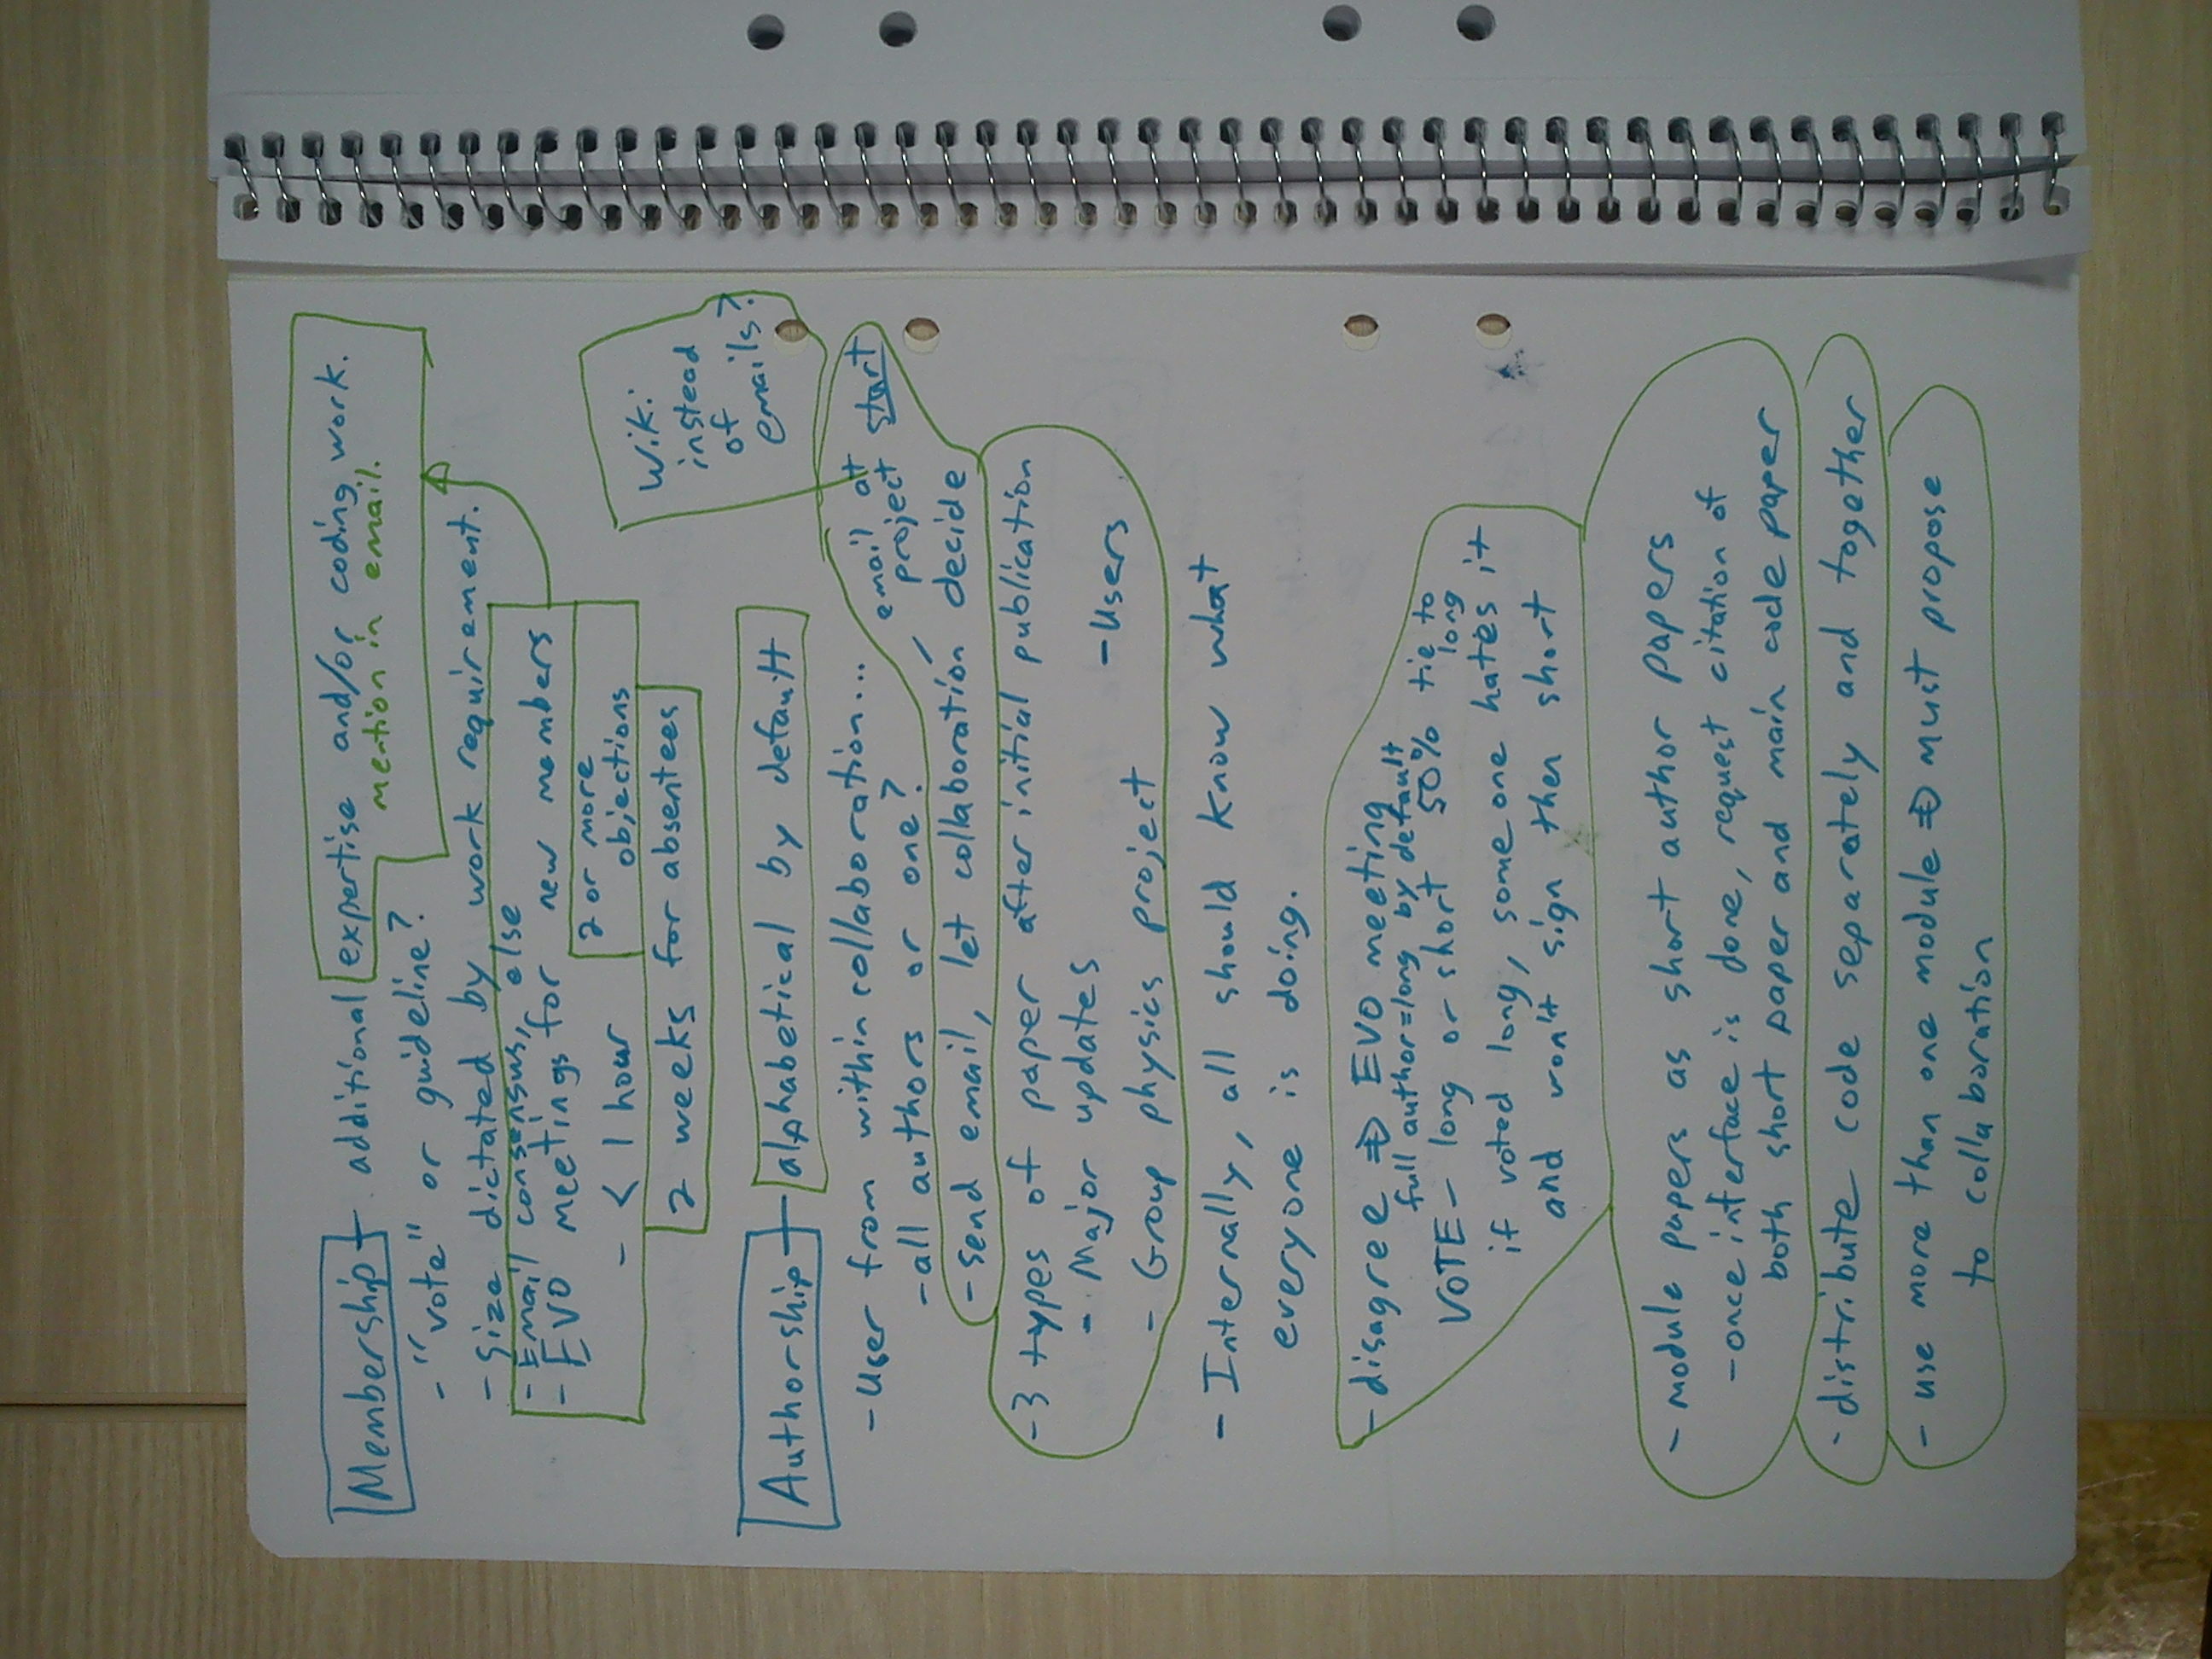 Membership - additional expertise and/or coding work.
mention in email.
- "vote" or guideline?
- Size dictated by work requirement.
- Email consensus, else
- EVO meetings for new members
- < 1 hour
2 or more
objections
2 weeks for absentees
Wiki
instead
of
emails?
Authorship - alphabetical by default
- User from within collaboration...
- all authors or one?
email at
project start
- send email, let collaboration decide
- 3 types of paper after initial publication
- Major updates
- Users
- Group physics project
- Internally, all should know what
everyone is doing.
- disagree ⇒ EVO meeting
full author=long by default
VOTE - long or short 50% tie to
long
if voted long, someone hates it
and won't sign then short
- module papers as short author papers
- once interface is done, request citation of
both short paper and main code paper
- distribute code separately and together
- use more than one module ⇒ must propose
to collaboration